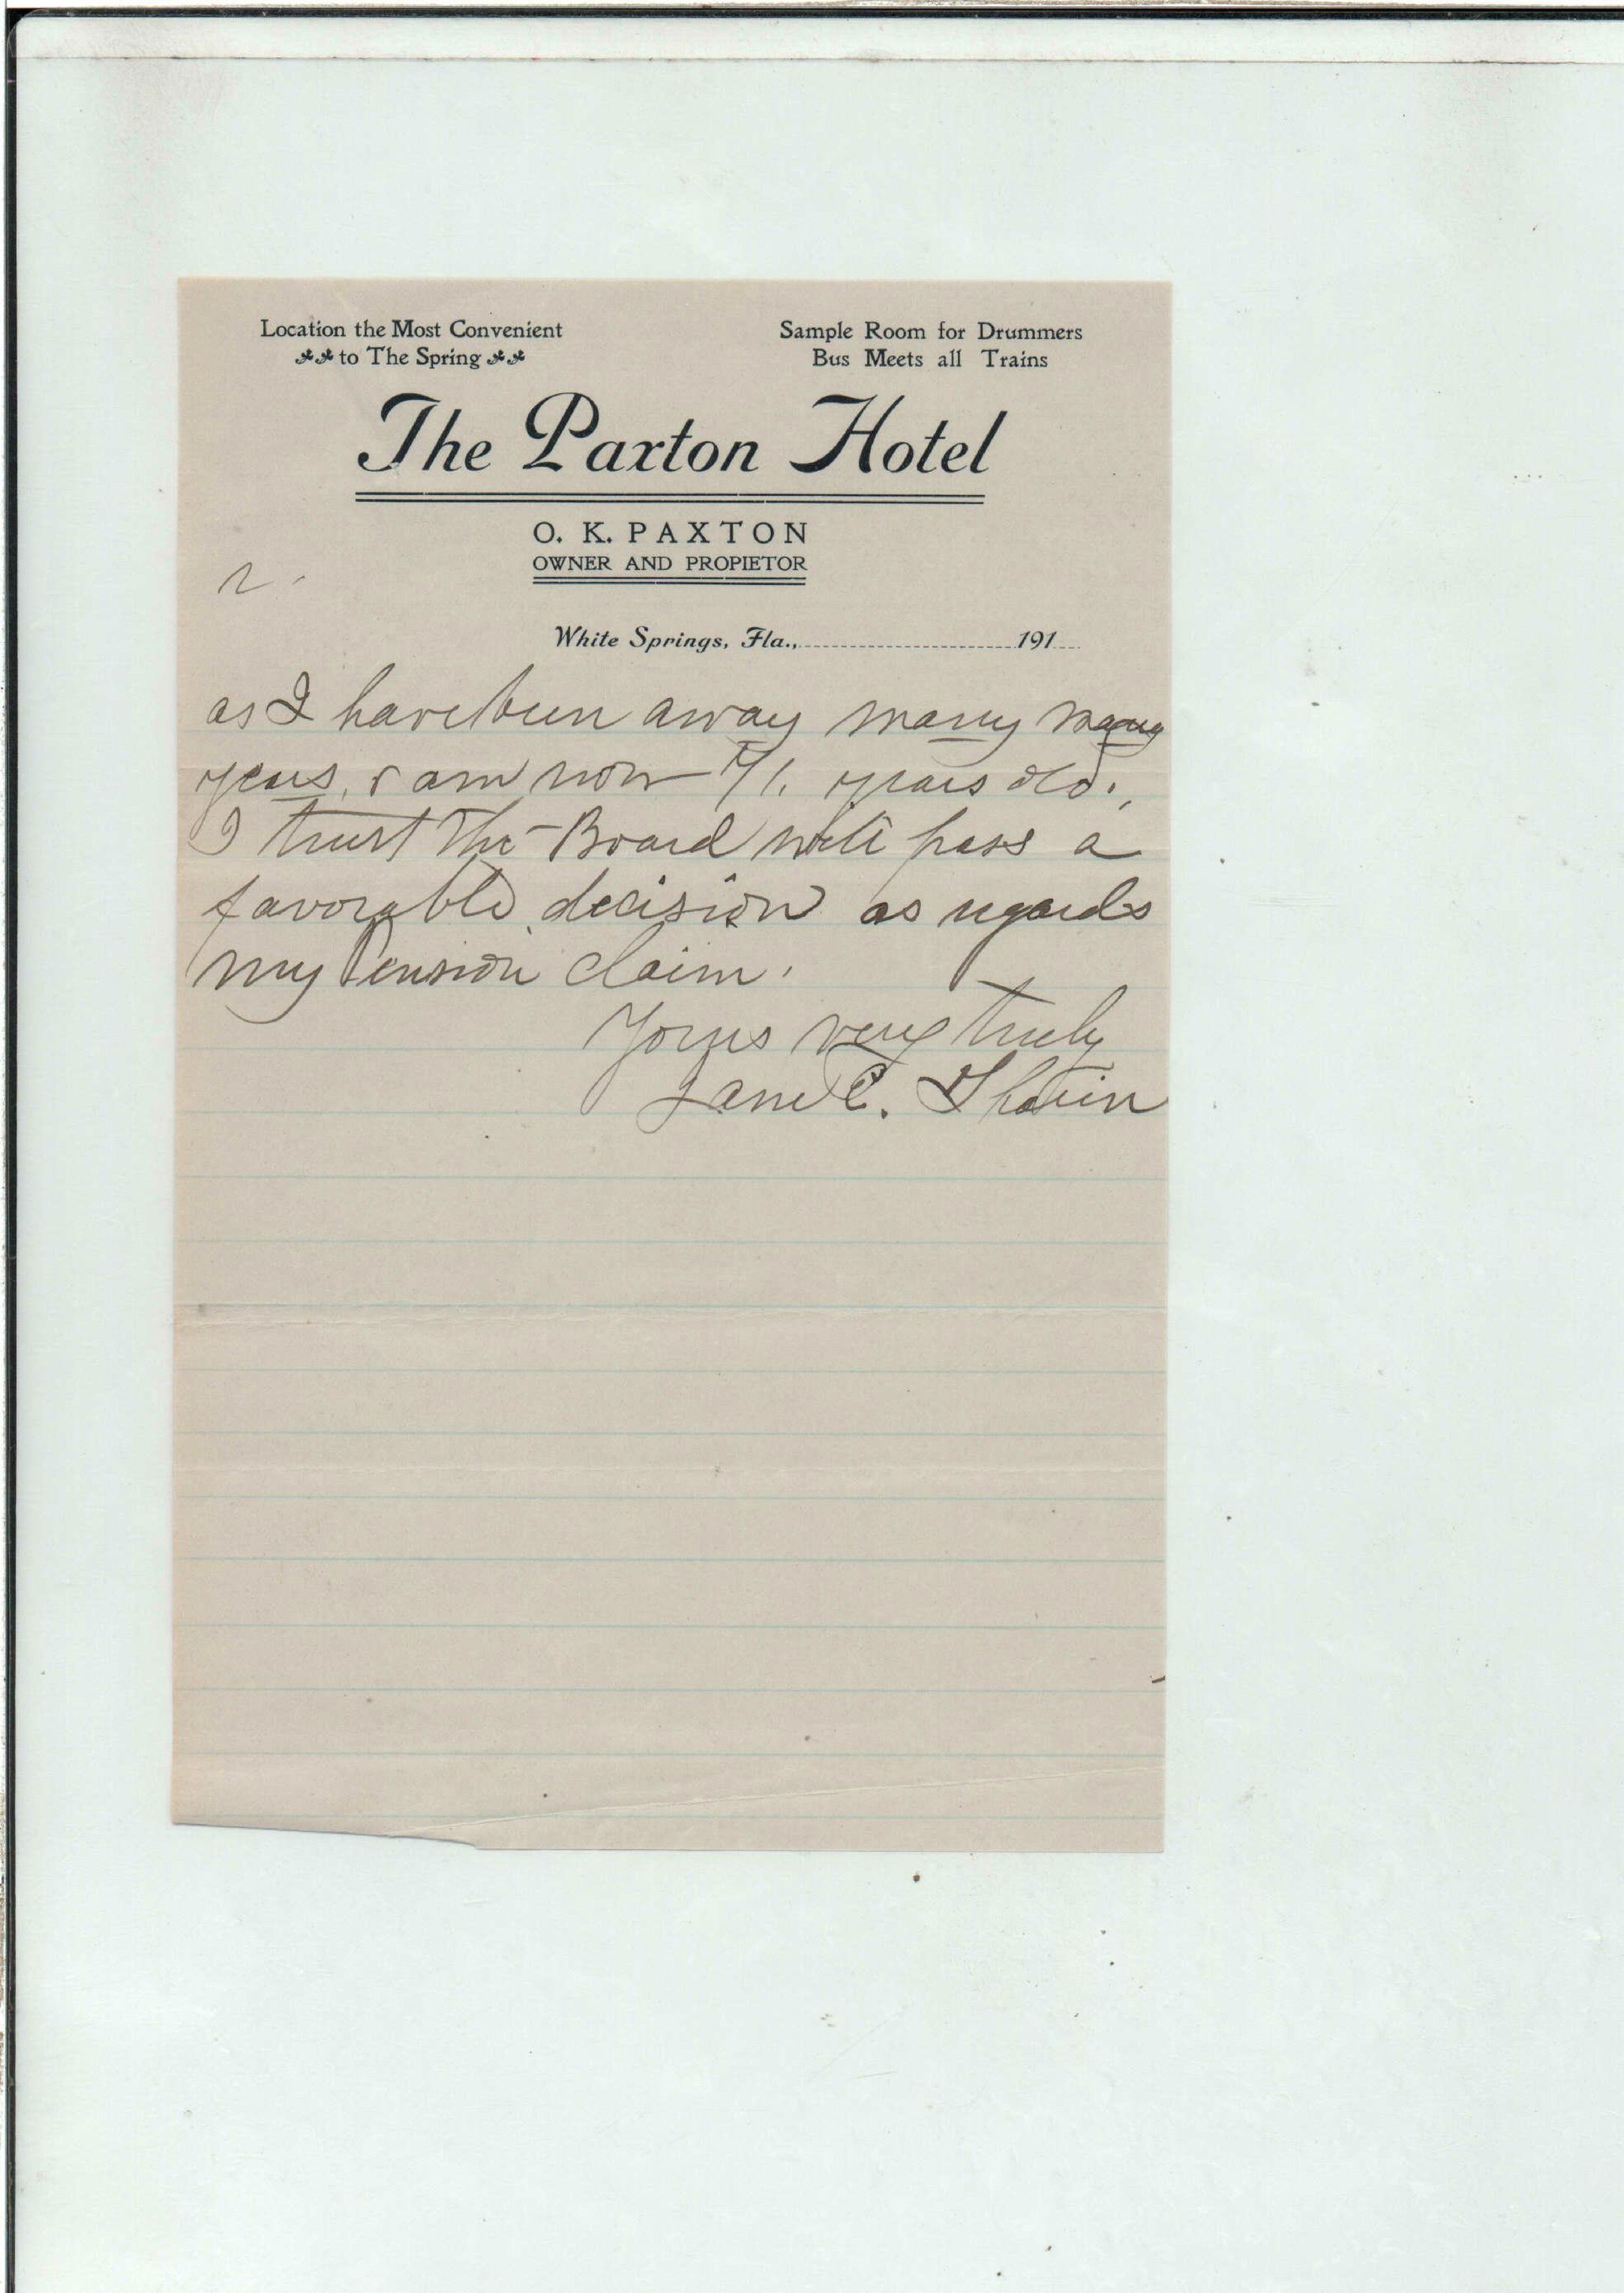 Location the Most Convenient
to The Spring
Sample Room for Drummers
Bus Meets all Trains
The Paxton Hotel
O. K. PAXTON
OWNER AND PROPIETOR
2.
White Springs, Fla., 191
as I have been away many many
years, & am now 71. years old.,
I trust The Board will pass a
favorable decision as regards
my Pension claim.
Yours very truly
Jane C.